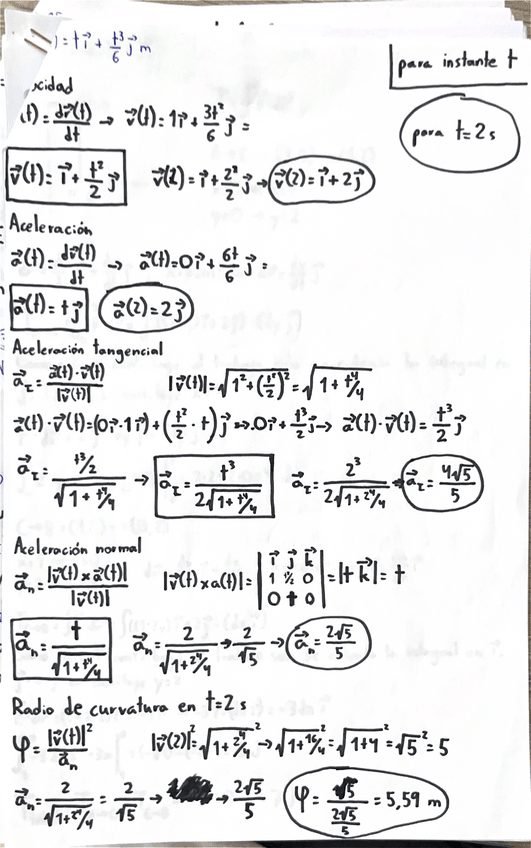 ) = t i⃗ + t³/6 j⃗ m
para instante t
ocidad
(t) = dr⃗(t)/dt → v⃗(t) = 1i⃗ + 3t²/6 j⃗ =
para t=2s
v⃗(t) = i⃗ + t²/2 j⃗ v⃗(2) = i⃗ + 2²/2 j⃗ → v⃗(2) = i⃗ + 2j⃗
Aceleración
a⃗(t) = dv⃗(t)/dt → a⃗(t) = 0i⃗ + 6t/6 j⃗ =
a⃗(t) = t j⃗ a⃗(2) = 2j⃗
Aceleración tangencial
a⃗τ = a⃗(t)·v⃗(t)/|v⃗(t)| |v⃗(t)| = √(1² + (t²/2)²) = √(1 + t⁴/4)
a⃗(t)·v⃗(t) = (0i⃗·1i⃗) + (t²/2 · t) j⃗ ⇒ 0i⃗ + t³/2 j⃗ → a⃗(t)·v⃗(t) = t³/2 j⃗
a⃗τ = t³/2 / √(1 + t⁴/4) → a⃗τ = t³ / 2√(1 + t⁴/4) a⃗τ = 2³ / 2√(1 + 2⁴/4) → a⃗τ = 4√5/5
Aceleración normal
a⃗n = |v⃗(t) x a⃗(t)| / |v⃗(t)| |v⃗(t) x a(t)| = | i⃗ j⃗ k⃗ | 1 t²/2 0 | 0 t 0 | = |t k⃗| = t
a⃗n = t / √(1 + t⁴/4) a⃗n = 2 / √(1 + 2⁴/4) → 2/√5 → a⃗n = 2√5/5
Radio de curvatura en t=2 s
φ = |v⃗(t)|² / a⃗n |v⃗(2)|² = √(1 + 2⁴/4)² → √(1 + 16/4)² = √(1+4)² = √5² = 5
a⃗n = 2 / √(1 + 2⁴/4) = 2/√5 → → 2√5/5 φ = √5 / (2√5/5) = 5,59 m